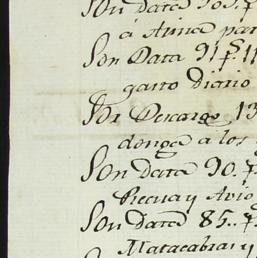 Son Data 103. p
á Avina par
Son Data 91 p.s 11
gasto Diario
Por Descargo 13
donga a los
Son Data 90. p
Recua y Avio
Son Data 85.. p
Matacabras y